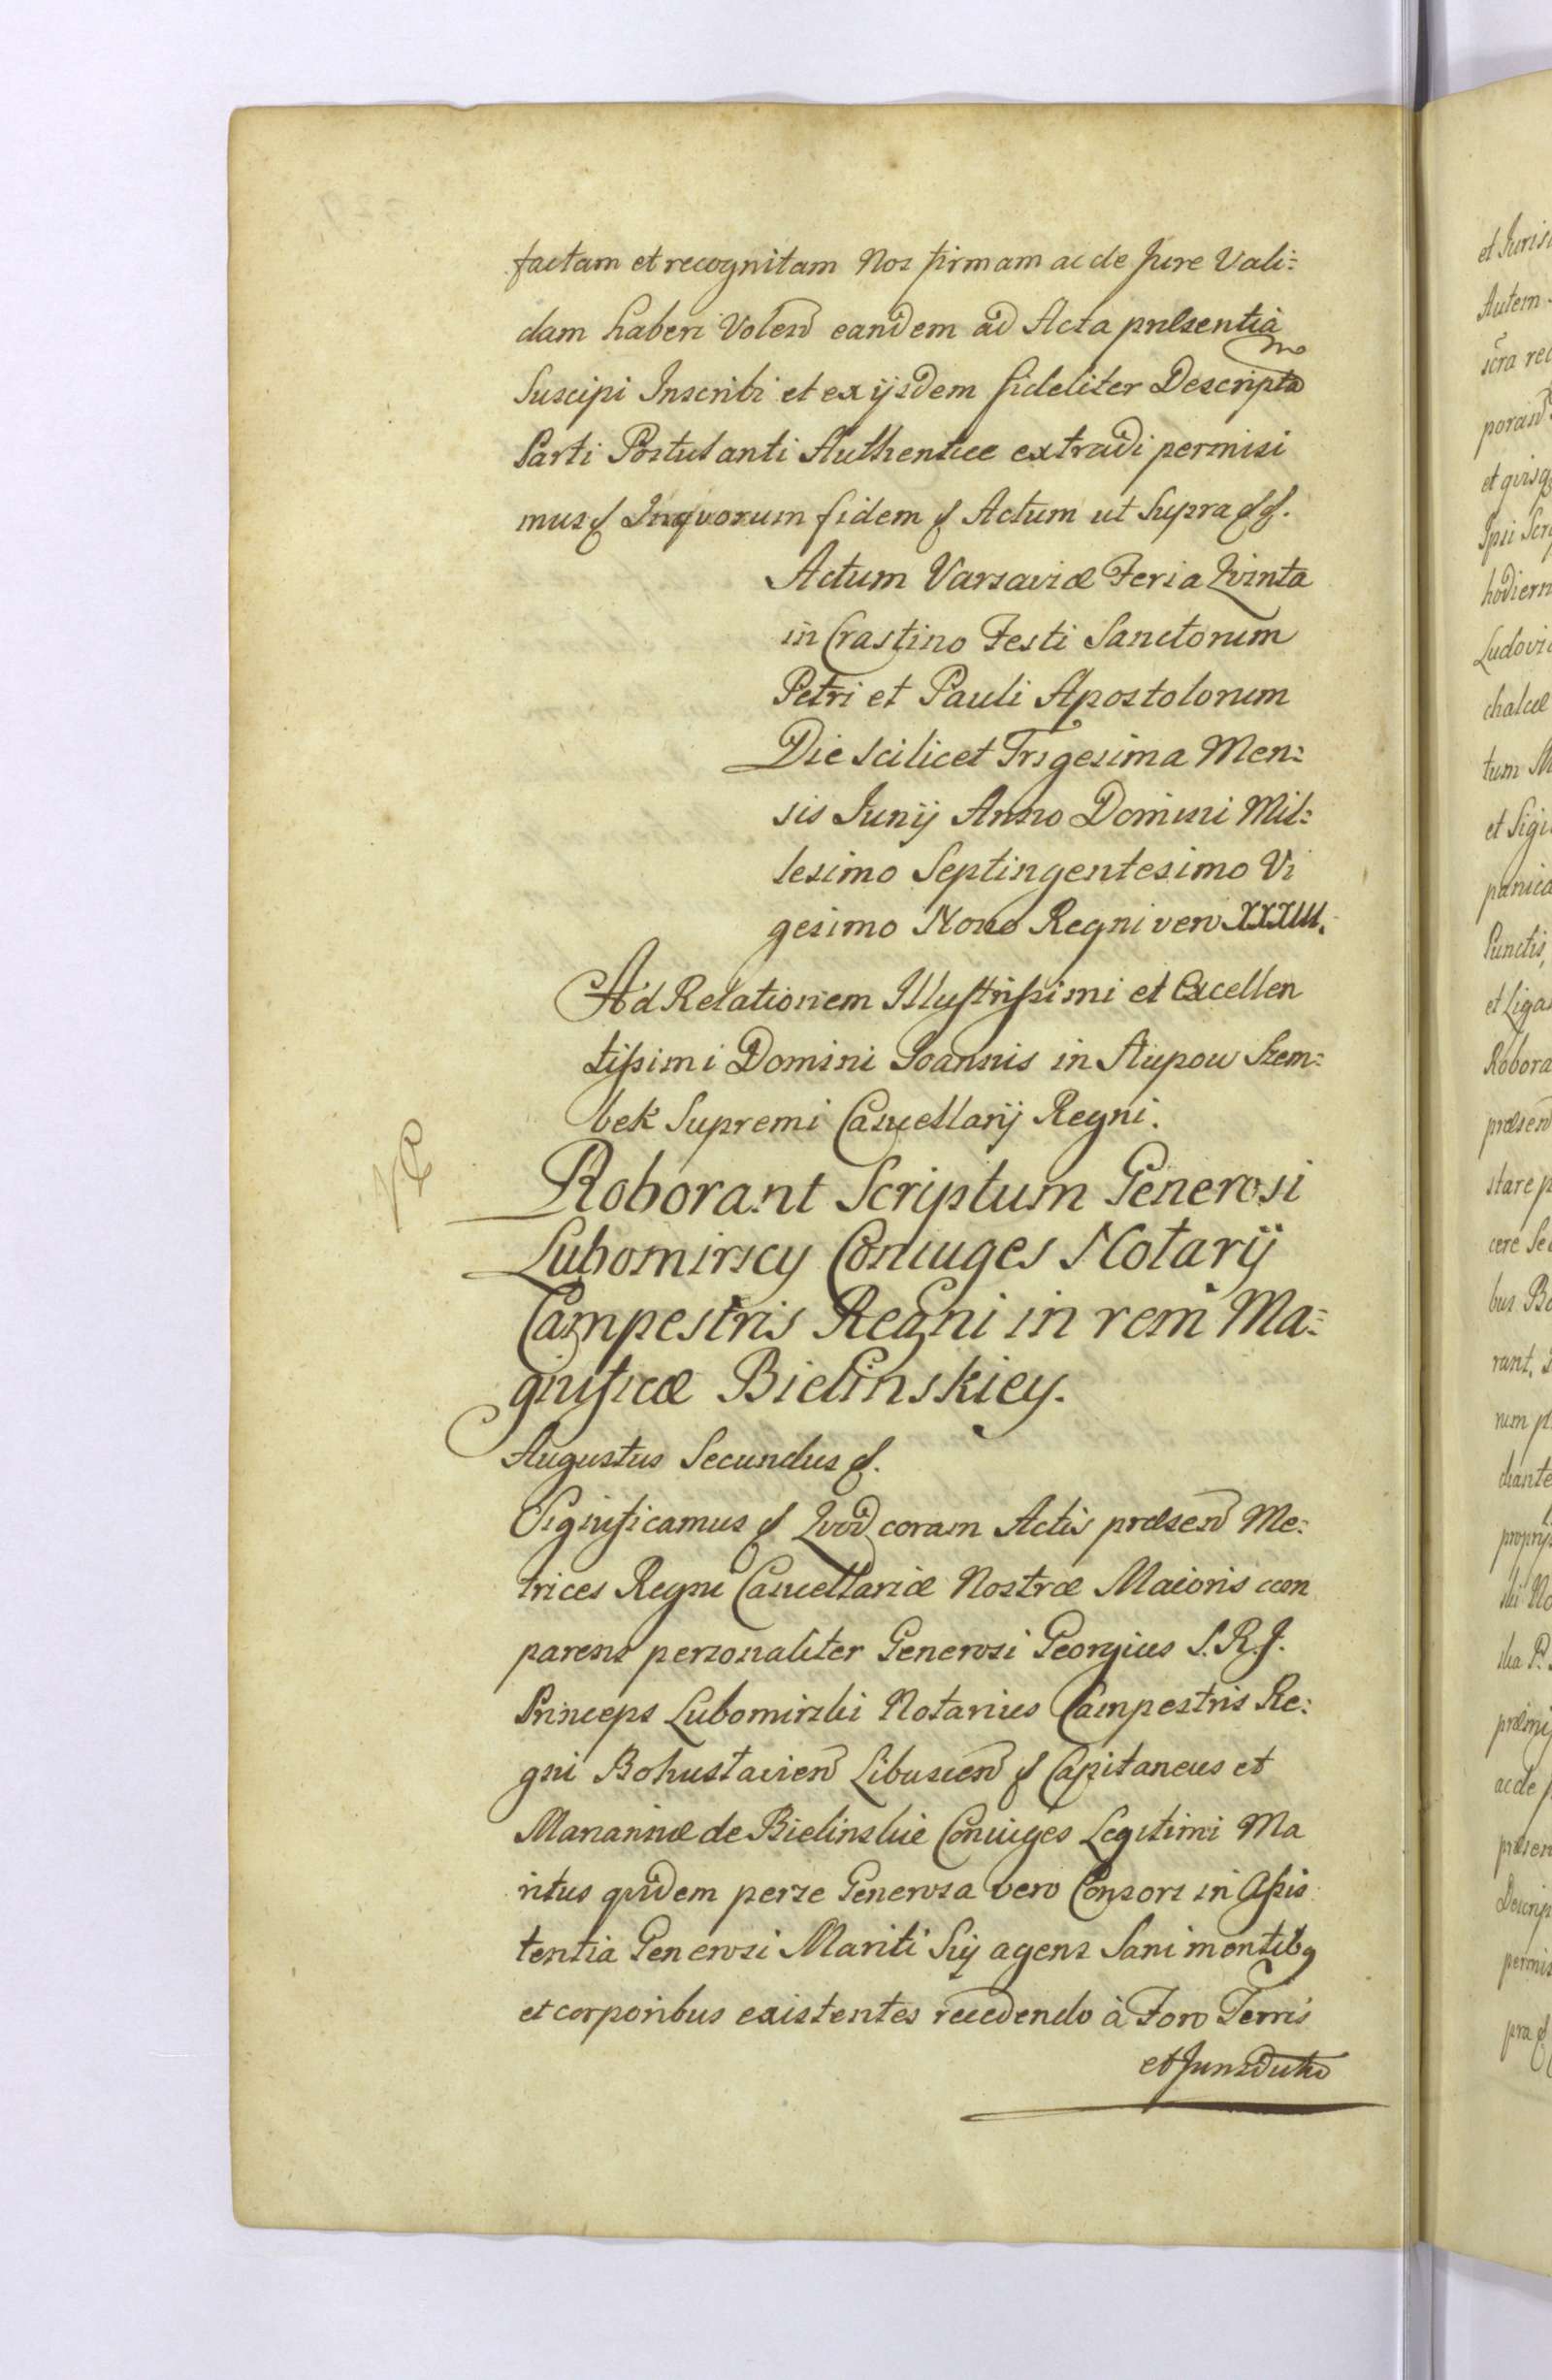 factam et recognitam Nos firmam ac de Jure Vali=
dam haberi Volen eandem ad Acta præsentia
Suscipi Inscribi et ex ijsdem fideliter Descripta
Parti Postulanti Authentice extradi permisi
mus & Inqvorum fidem & Actum ut Supra &&.
Actum Varsaviæ Feria Qvinta
in Crastino Festi Sanctorum
Petri et Pauli Apostolorum
Die scilicet Trigesima Men=
sis Junij Anno Domini Mil=
lesimo Septingentesimo Vi
gesimo Nono Regni vero XXXIII.
Ad Relationem Illustrissimi et Excellen
tissimi Domini Joannis in Słupow Szem=
bek Supremi Cancellarij Regni.
Roborant Scriptum Generosi
Lubomirscy Coniuges Notarij
Campestris Regni in rem Ma=
gnificæ Bielinskiey.
Augustus Secundus &.
Significamus & Qvod coram Actis præsen Me=
trices Regni Cancellariæ Nostræ Maioris com
parens personaliter Generosi Georgius S.R.J.
Princeps Lubomirski Notarius Campestris Re=
gni Bohuslavien Libuscen & Capitaneus et
Marannæ de Bielinskie Coniuges Legitimi Ma
ritus qvidem per se Generosa vero Consors in Assis
tentia Generosi Mariti Sui agens Sani mentibq
et corporibus existentes recedendo à Foro Terris
et Jurisdictio
et Juris
Autem
scra rec
poran
et qvisq
Ipsi Scr
hodiern
Ludovic
chalcæ
tum M
et Sigi
panica
Punctis,
et Liga
Robora
præsen
stare p
cere Se
bus Bo
rant.
rum p
diante
proprijs
ski No
præmi
ac de
præsen
Descrip
permis
pra &